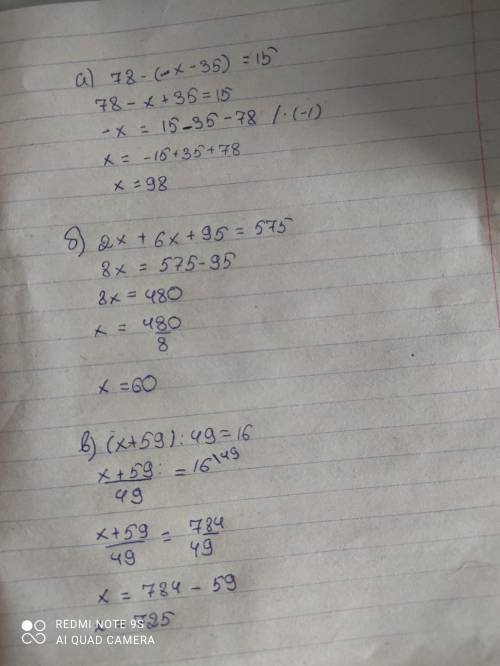 а) 78 - (-x - 35) = 15
78 - x + 35 = 15
-x = 15 - 35 - 78 / · (-1)
x = -15 + 35 + 78
x = 98
б) 2x + 6x + 95 = 575
8x = 575 - 95
8x = 480
x = 480/8
x = 60
в) (x + 59) : 49 = 16
x + 59/49 = 16\49
x + 59/49 = 784/49
x = 784 - 59
x = 725
REDMI NOTE 9S
AI QUAD CAMERA